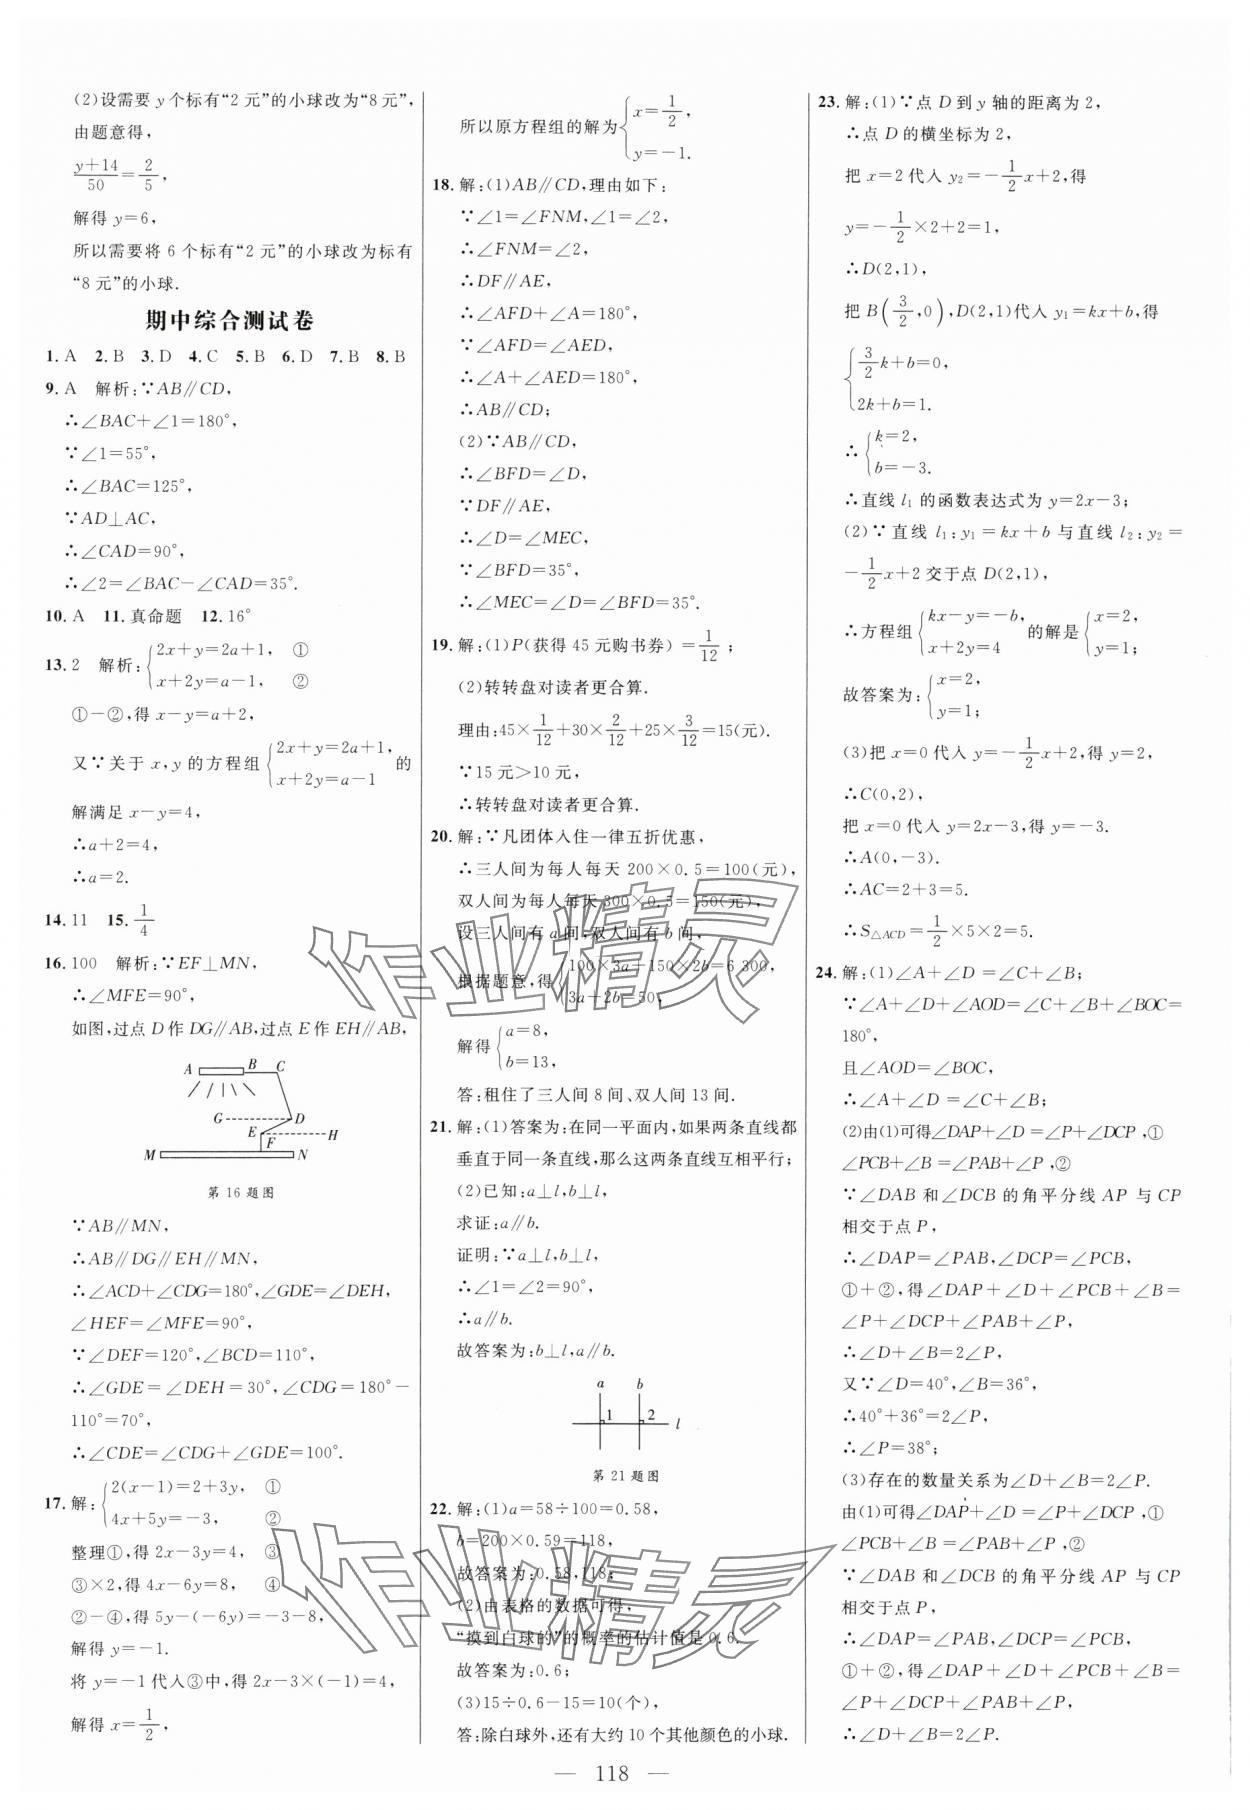 (2)设需要 y 个标有“2 元”的小球改为“8元”,
由题意得,
y+14/50=2/5,
解得 y=6,
所以需要将 6 个标有“2 元”的小球改为标有
“8 元”的小球.
期中综合测试卷
1. A 2. B 3. D 4. C 5. B 6. D 7. B 8. B
9. A 解析:∵AB∥CD,
∴∠BAC+∠1=180°,
∵∠1=55°,
∴∠BAC=125°,
∵AD⊥AC,
∴∠CAD=90°,
∴∠2=∠BAC-∠CAD=35°.
10. A 11. 真命题 12. 16°
13. 2 解析:{2x+y=2a+1, ①
x+2y=a-1, ②
①-②,得 x-y=a+2,
又∵关于 x,y 的方程组{2x+y=2a+1,
x+2y=a-1 的
解满足 x-y=4,
∴a+2=4,
∴a=2.
14. 11 15. 1/4
16. 100 解析:∵EF⊥MN,
∴∠MFE=90°,
如图,过点 D 作 DG∥AB,过点 E 作 EH∥AB,
A B C
G D
E H
F
M N
第 16 题图
∵AB∥MN,
∴AB∥DG∥EH∥MN,
∴∠ACD+∠CDG=180°,∠GDE=∠DEH,
∠HEF=∠MFE=90°,
∵∠DEF=120°,∠BCD=110°,
∴∠GDE=∠DEH=30°,∠CDG=180°-
110°=70°,
∴∠CDE=∠CDG+∠GDE=100°.
17. 解:{2(x-1)=2+3y, ①
4x+5y=-3, ②
整理①,得 2x-3y=4, ③
③×2,得 4x-6y=8, ④
②-④,得 5y-(-6y)=-3-8,
解得 y=-1.
将 y=-1 代入③中,得 2x-3×(-1)=4,
解得 x=1/2,
所以原方程组的解为{x=1/2,
y=-1.
18. 解:(1)AB∥CD,理由如下:
∵∠1=∠FNM,∠1=∠2,
∴∠FNM=∠2,
∴DF∥AE,
∴∠AFD+∠A=180°,
∵∠AFD=∠AED,
∴∠A+∠AED=180°,
∴AB∥CD;
(2)∵AB∥CD,
∴∠BFD=∠D,
∵DF∥AE,
∴∠D=∠MEC,
∵∠BFD=35°,
∴∠MEC=∠D=∠BFD=35°.
19. 解:(1)P(获得 45 元购书券)=1/12;
(2)转转盘对读者更合算.
理由:45×1/12+30×2/12+25×3/12=15(元).
∵15 元>10 元,
∴转转盘对读者更合算.
20. 解:∵凡团体入住一律五折优惠,
∴三人间为每人每天 200×0.5=100(元),
双人间为每人每天300×0.5=150(元),
设三人间有 a 间,双人间有 b 间,
根据题意,得{100×3a+150×2b=6 300,
3a+2b=50,
解得{a=8,
b=13,
答:租住了三人间 8 间、双人间 13 间.
21. 解:(1)答案为:在同一平面内,如果两条直线都
垂直于同一条直线,那么这两条直线互相平行;
(2)已知:a⊥l,b⊥l,
求证:a∥b.
证明:∵a⊥l,b⊥l,
∴∠1=∠2=90°,
∴a∥b.
故答案为:b⊥l,a∥b.
a b
1 2 l
第 21 题图
22. 解:(1)a=58÷100=0.58,
b=200×0.59=118,
故答案为:0.58,118;
(2)由表格的数据可得,
“摸到白球的”的概率的估计值是 0.6.
故答案为:0.6;
(3)15÷0.6-15=10(个),
答:除白球外,还有大约 10 个其他颜色的小球.
23. 解:(1)∵点 D 到 y 轴的距离为 2,
∴点 D 的横坐标为 2,
把 x=2 代入 y₂=-1/2x+2,得
y=-1/2×2+2=1,
∴D(2,1),
把 B(3/2,0),D(2,1)代入 y₁=kx+b,得
{3/2k+b=0,
2k+b=1.
∴{k=2,
b=-3.
∴直线 l₁ 的函数表达式为 y=2x-3;
(2)∵直线 l₁:y₁=kx+b 与直线 l₂:y₂=
-1/2x+2 交于点 D(2,1),
∴方程组{kx-y=-b,
x+2y=4 的解是{x=2,
y=1;
故答案为:{x=2,
y=1;
(3)把 x=0 代入 y=-1/2x+2,得 y=2,
∴C(0,2),
把 x=0 代入 y=2x-3,得 y=-3.
∴A(0,-3).
∴AC=2+3=5.
∴S△ACD=1/2×5×2=5.
24. 解:(1)∠A+∠D=∠C+∠B;
∵∠A+∠D+∠AOD=∠C+∠B+∠BOC=
180°,
且∠AOD=∠BOC,
∴∠A+∠D=∠C+∠B;
(2)由(1)可得∠DAP+∠D=∠P+∠DCP,①
∠PCB+∠B=∠PAB+∠P,②
∵∠DAB 和∠DCB 的角平分线 AP 与 CP
相交于点 P,
∴∠DAP=∠PAB,∠DCP=∠PCB,
①+②,得∠DAP+∠D+∠PCB+∠B=
∠P+∠DCP+∠PAB+∠P,
∴∠D+∠B=2∠P,
又∵∠D=40°,∠B=36°,
∴40°+36°=2∠P,
∴∠P=38°;
(3)存在的数量关系为∠D+∠B=2∠P.
由(1)可得∠DAP+∠D=∠P+∠DCP,①
∠PCB+∠B=∠PAB+∠P,②
∵∠DAB 和∠DCB 的角平分线 AP 与 CP
相交于点 P,
∴∠DAP=∠PAB,∠DCP=∠PCB,
①+②,得∠DAP+∠D+∠PCB+∠B=
∠P+∠DCP+∠PAB+∠P,
∴∠D+∠B=2∠P.
作业精灵
作业精灵
— 118 —